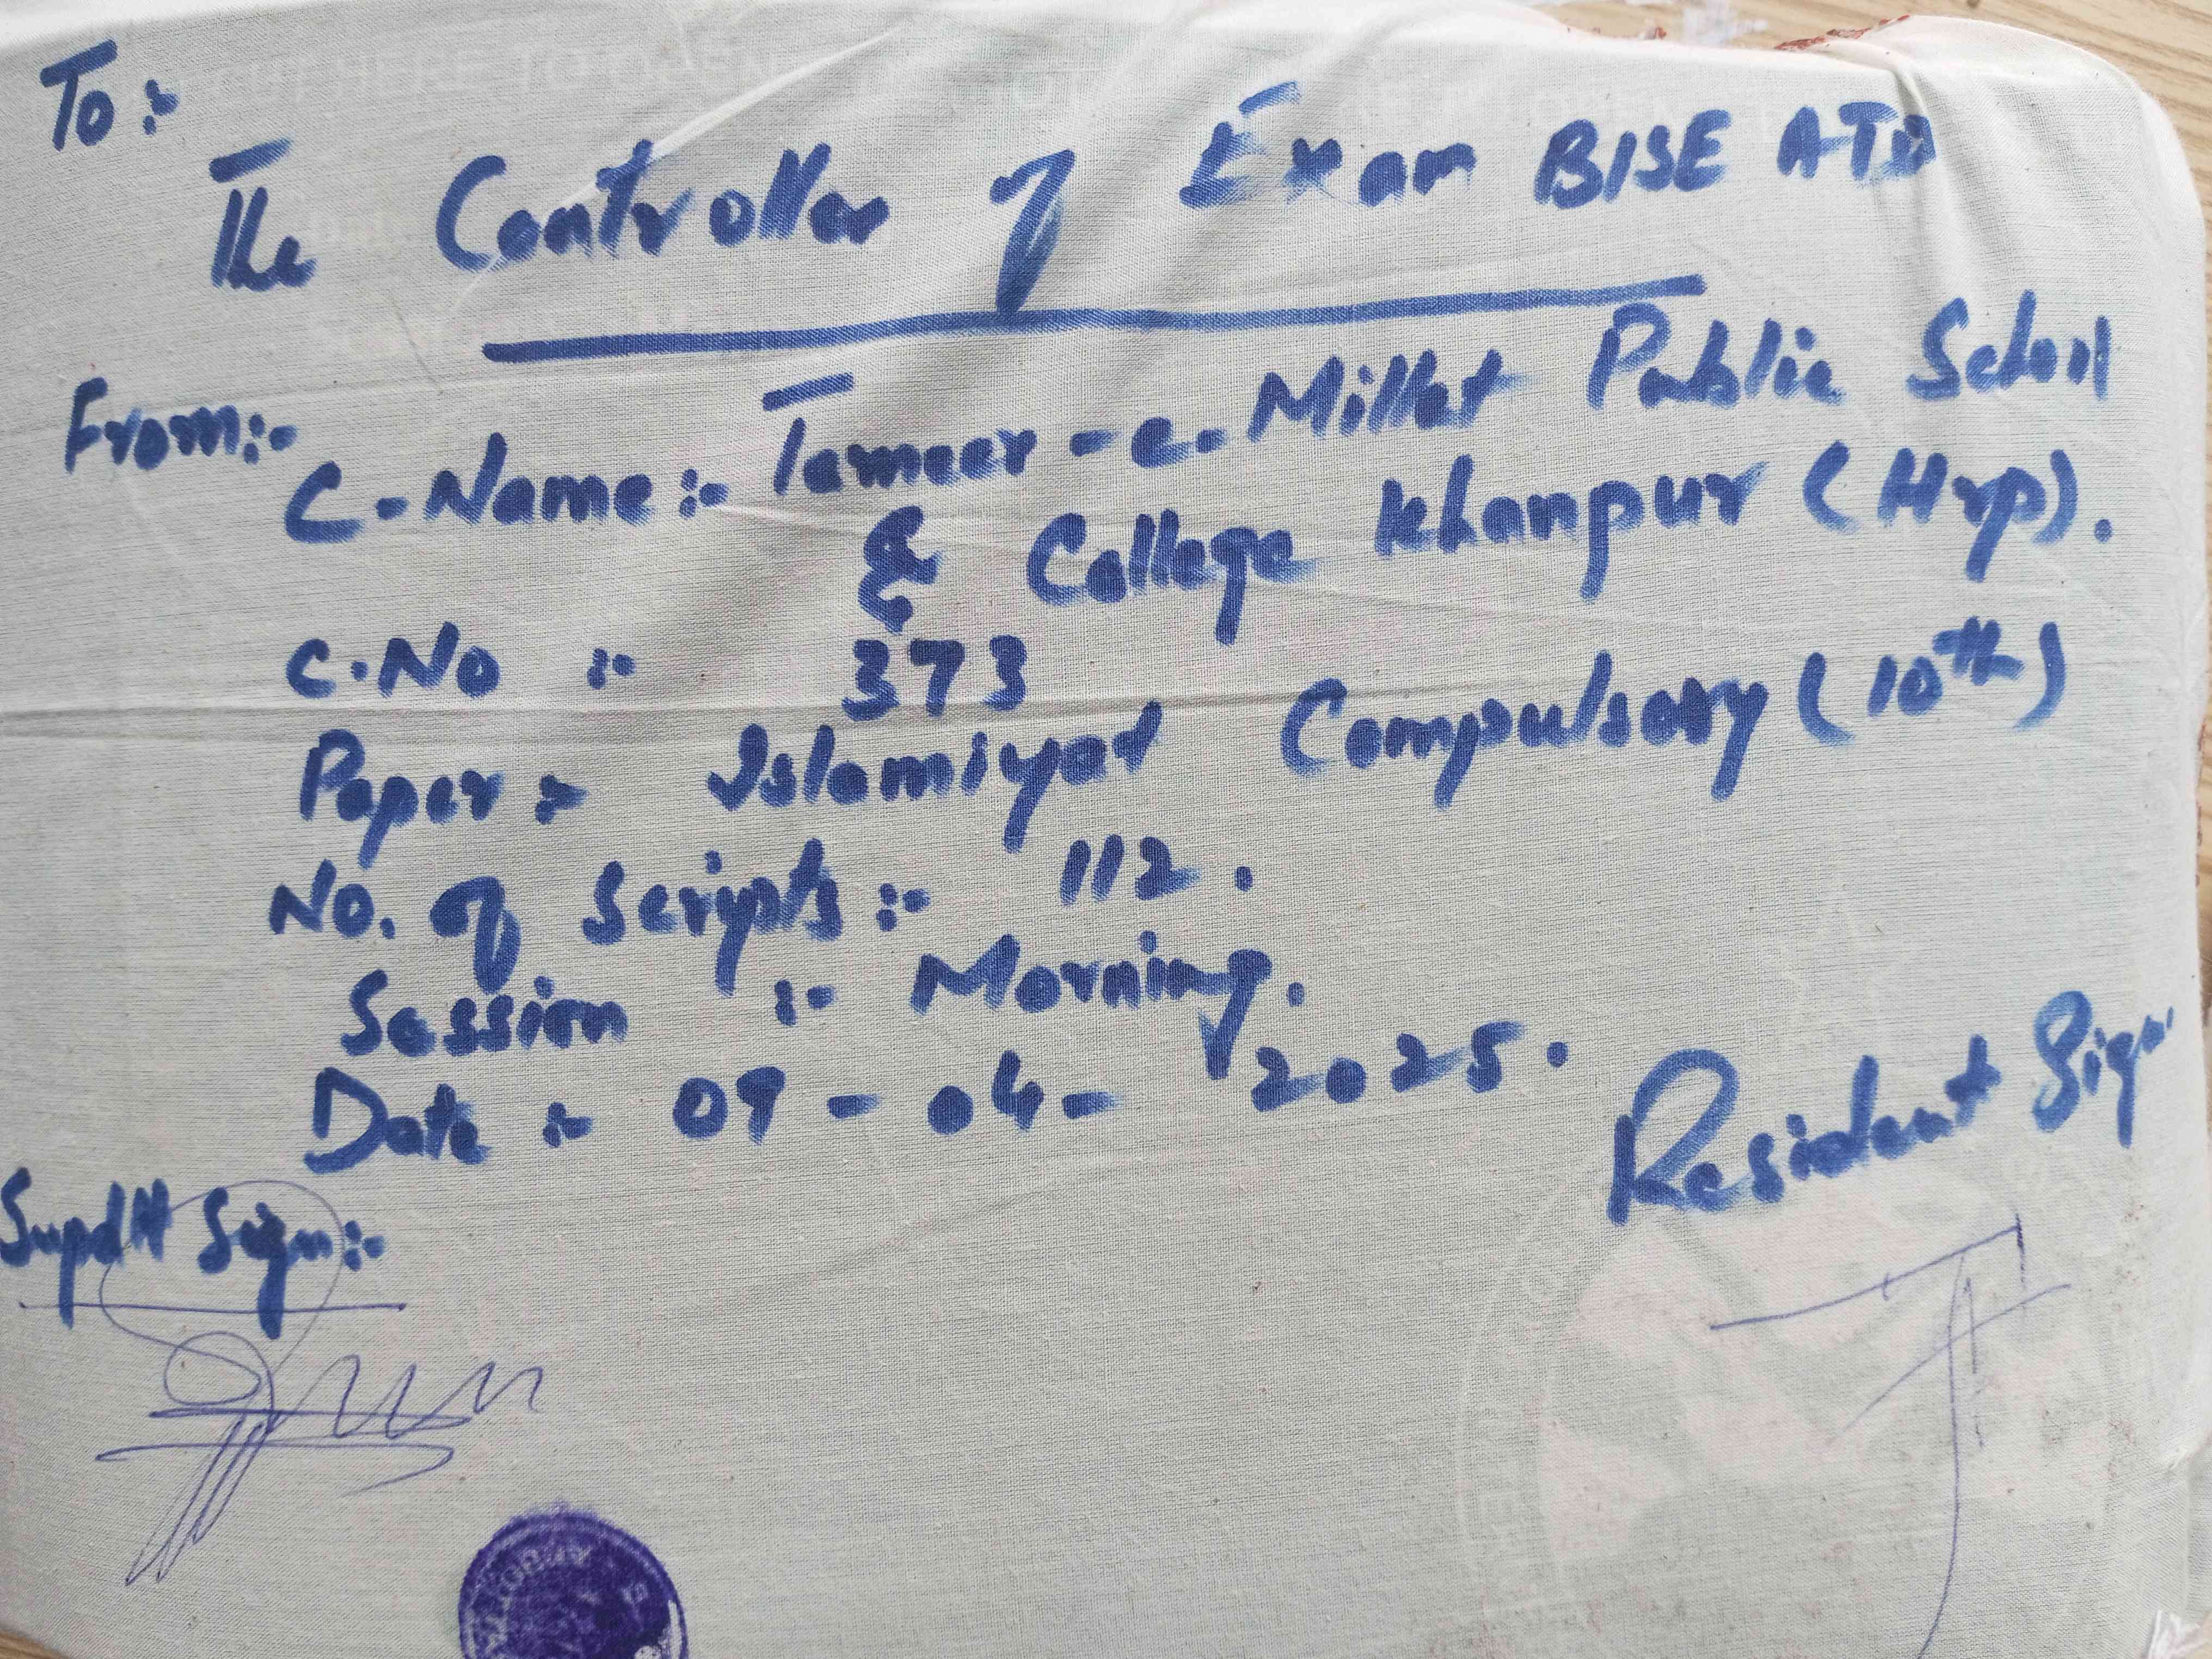 To:-
The Controller of Exam BISE ATD
From:-
C-Name:- Tameer-e-Millat Public School
& College Khanpur (Hrp).
C.No :- 373
Paper :- Islamiyat Compulsory (10th)
No. of Scripts:- 112.
Session :- Morning.
Date :- 09-04-2025.
Resident Sign.
Supdtt Sign:-